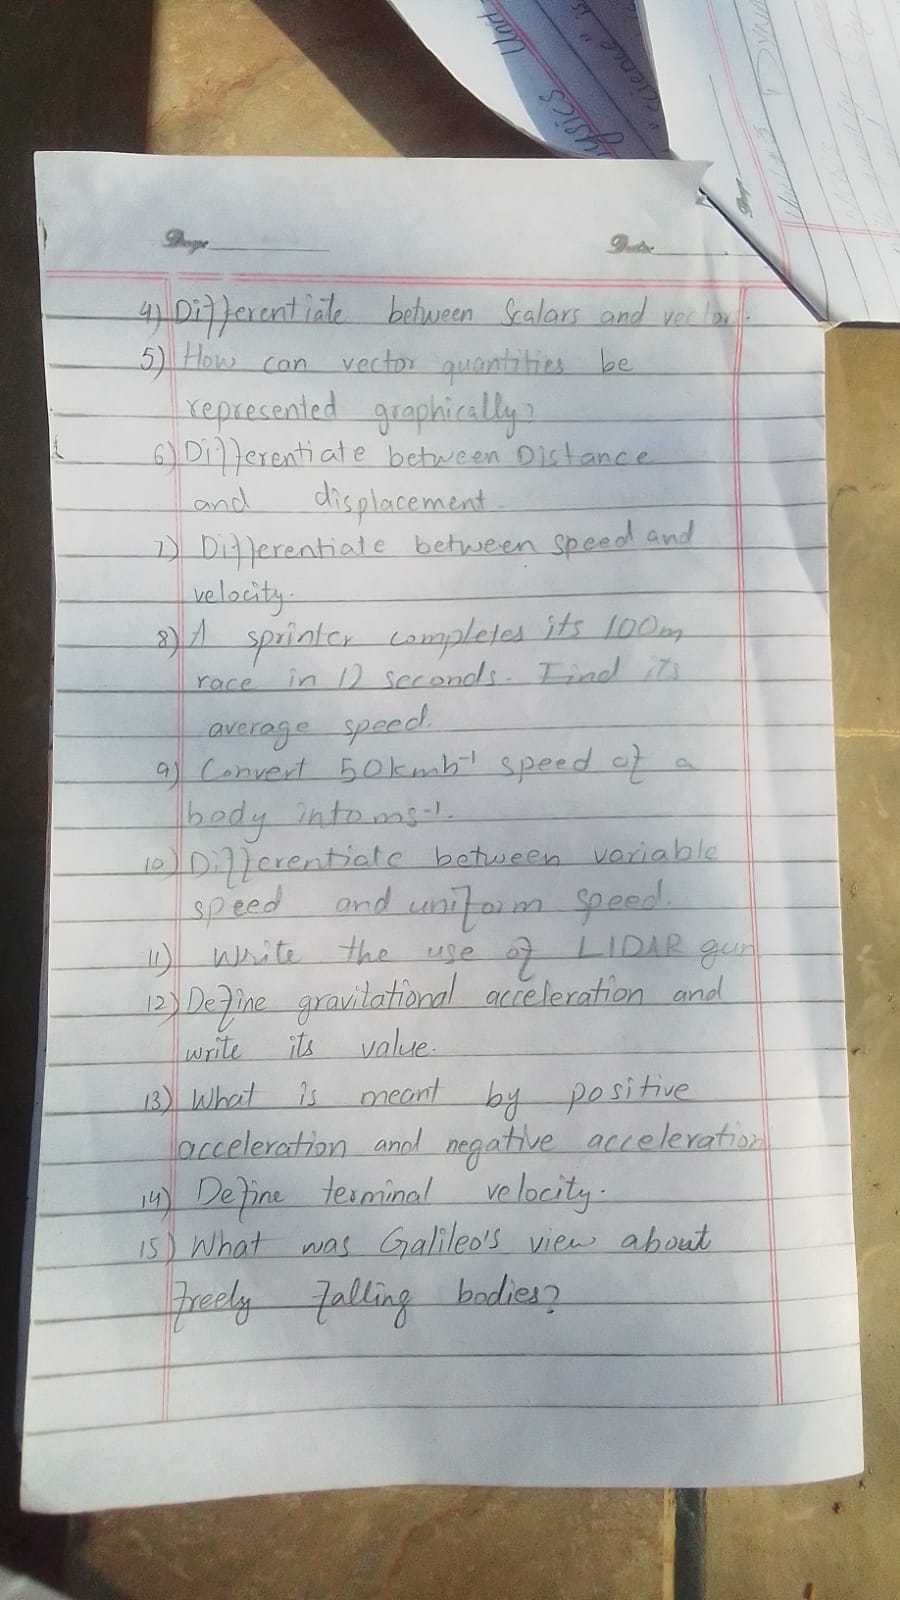 Unit
"science" is
Physics
Page
Date
4) Differentiate between Scalars and vector.
5) How can vector quantities be
represented graphically?
6) Differentiate between Distance
and displacement.
7) Differentiate between speed and
velocity.
8) A sprinter completes its 100m
race in 12 seconds. Find its
average speed.
9) Convert 50kmh-1 speed of a
body into ms-1.
10) Differentiate between variable
speed and uniform speed.
11) Write the use of LIDAR gun
12) Define gravitational acceleration and
write its value.
13) What is meant by positive
acceleration and negative acceleration
14) Define terminal velocity.
15) What was Galileo's view about
freely falling bodies?